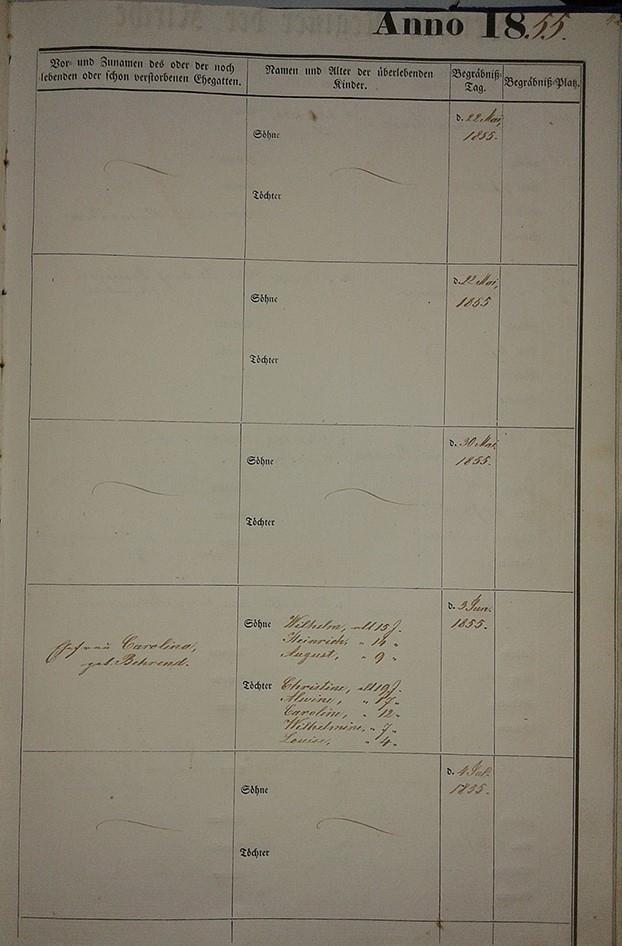 Anno 1855.
Vor- und Zunamen des oder der noch
lebenden oder schon verstorbenen Ehegatten.
Namen und Alter der überlebenden
Kinder.
Begräbniß-
Tag.
Begräbniß-Platz.
Söhne
Töchter
d. 22 Mai,
1855.
Söhne
Töchter
d. 22 Mai,
1855
Söhne
Töchter
d. 30 Mai
1855.
Ehefrau Carolina,
geb. Behrend.
Söhne Wilhelm, alt 15 J.
Heinrich, " 14 "
August, " 9 "
Töchter Christine, alt 19 J.
Alwine, " 17 "
Caroline, " 12 "
Wilhelmine, " 7 "
Louise, " 4 "
d. 3 Jun.
1855.
Söhne
Töchter
d. 4 Jul.
1855.